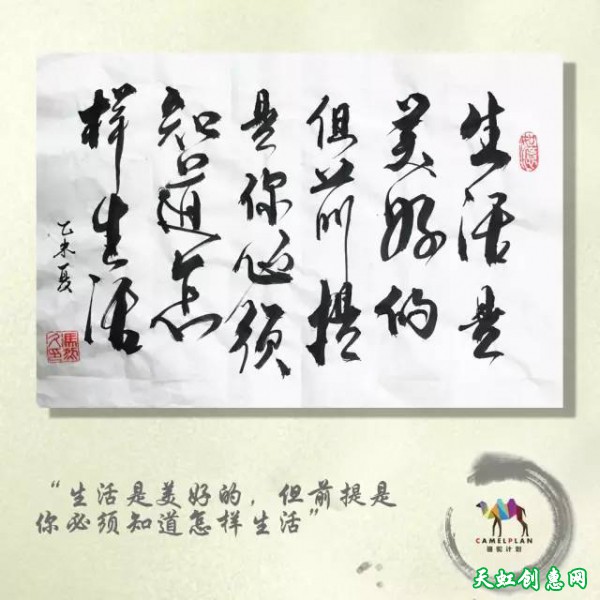 生活是
美好的
但前提
是你必须
知道怎
样生活
乙未夏
“生活是美好的，但前提是
你必须知道怎样生活”
CAMELPLAN
骆驼计划
天虹创惠网